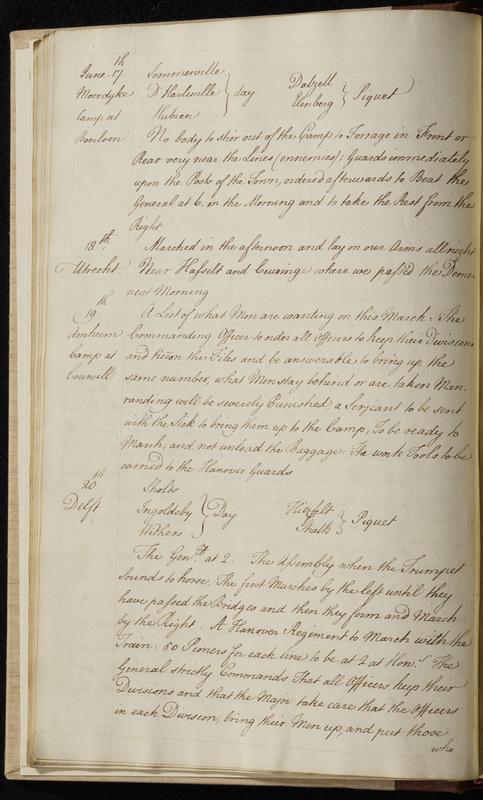 June 17th Sommerville
Moerdyke D'Harlville } day Dalzell Elenberg } Piquet
Camp at Hubien
Boerloen No body to stir out of the Camp to Forrage in Front or
Rear very near the Lines (ennemies); Guards immediately
upon the Posts of the Town, ordered afterwards to Beat the
General at 6. in the Morning and to take the Rest from the
Right
18th Marched in the afternoon and lay on our Arms all night
Utrecht. Near Hasselt and Curinge where we passed the Demer
next Morning
19th A List of what Men are wanting on this March. The
Arnheim Commanding Officer to order all Officers to keep their Divisions
Camp at and reckon the Files and be answerable to bring up the
Courvill same number, what Men stay behind or are taken Mau-
rauding will be severely Punished, a Serjeant to be sent
with the Sick to bring them up to the Camp, To be ready to
March, and not unload the Baggage. The work Tools to be
carried to the Hanover Guards
20th Sholts
Delft Ingoldsby } Day Hitzfelt Shalts } Piquet
Withers
The Genl. at 2. The Assembly when the Trumpet
sounds to horse, The first Marches by the left until they
have passed the Bridges and then they form and March
by the Right. A Hanover Regiment to March with the
Train. 50 Pioners for each line to be at 2 at Hom.r The
General strictly Commands That all Officers keep their
Divisions and that the Major take care that the Officers
in each Division, bring their Men up, and put those
who